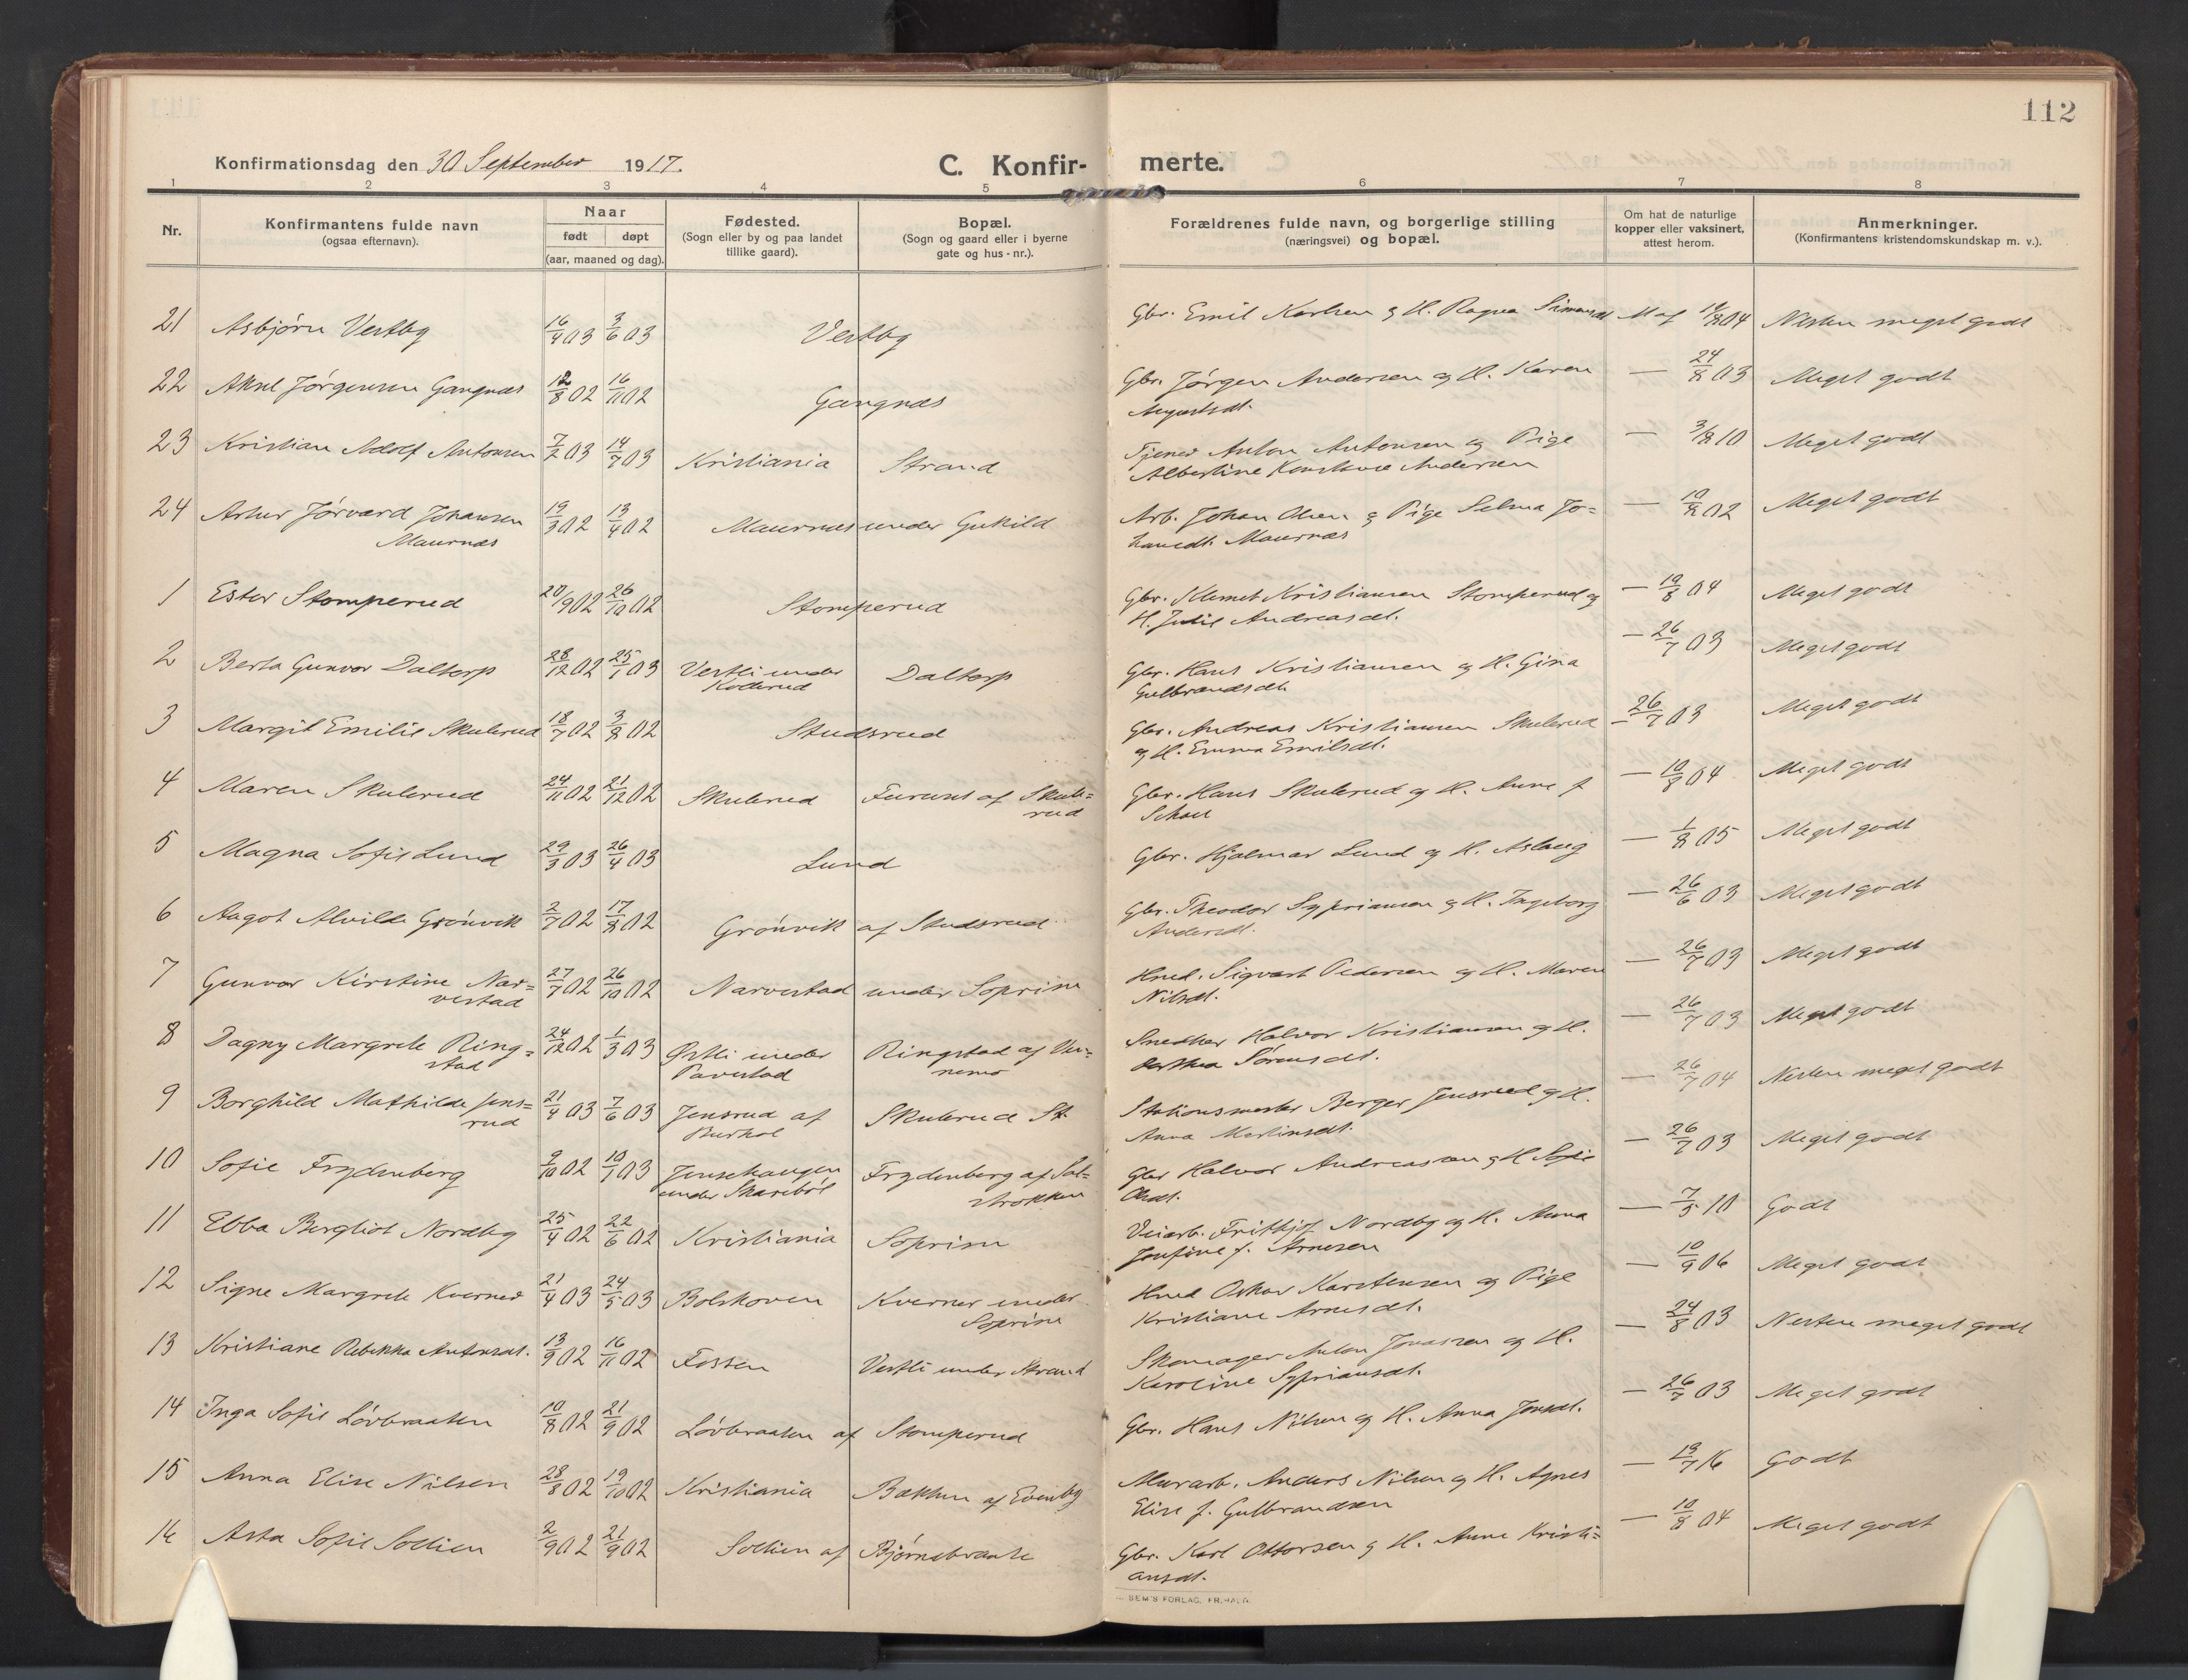 112
Konfirmationsdag den 30 September 1917.
C. Konfir- merte.
1 2 3 4 5 6 7 8
Nr.
Konfirmantens fulde navn
(ogsaa efternavn).
Naar
født døpt
(aar, maaned og dag).
Fødested.
(Sogn eller by og paa landet
tillike gaard).
Bopæl.
(Sogn og gaard eller i byerne
gate og hus-nr.).
Forældrenes fulde navn, og borgerlige stilling
(næringsvei) og bopæl.
Om hat de naturlige
kopper eller vaksinert,
attest herom.
Anmerkninger.
(Konfirmantens kristendomskundskap m. v.).
21 Asbjørn Vestby 16/4 03 3/6 03 Vestby Gbr. Emil Karlsen g H. Ragna Simensdt M af /8 04 Nesten meget godt
22 Aksel Jørgensen Gangnæs 12/8 02 16/11 02 Gangnæs Gbr. Jørgen Andersen og H. Karen — 24/8 03 Meget godt
Augustsdt.
23 Kristian Adolf Antonsen 7/2 03 14/7 03 Kristiania Strand Tjener Anton Antonsen og Pige — 3/8 10 Meget godt
Albertine Konstance Andersen
24 Artur Jørvard Johansen 19/3 02 13/4 02 Maurnes under Gukild Arb. Johan Olsen g Pige Selma Jo= — 10/8 02 Meget godt
Maurnæs hansdt. Maurnæs
1 Ester Stomperud 20/9 02 26/10 02 Stomperud Gbr. Klemet Kristiansen Stomperud og — 19/8 04 Meget godt
H. Julie Andreasdt.
2 Berta Gunvor Daltorp 28/12 02 25/1 03 Vestli under Daltorp Gbr. Hans Kristiansen og H. Gina — 26/7 03 Meget godt
Koderud Gulbrandsdt.
3 Margit Emilie Skulerud 18/7 02 3/8 02 Studsrud Gbr. Andreas Kristiansen Skulerud — 26/7 03 Meget godt
og H. Emma Emilsdt.
4 Maren Skulerud 24/11 02 21/12 02 Skulerud Furunes af Skule= Gbr. Hans Skulerud og H. Anne f — 10/8 04 Meget godt
rud Schou
5 Magna Sofie Lund 29/3 03 26/4 03 Lund Gbr. Hjalmar Lund og H. Aslaug — 1/8 05 Meget godt
6 Aagot Alvilde Grønvik 2/7 02 17/8 02 Grønvik af Studsrud Gbr. Theodor Sypriansen g H. Ingeborg — 26/6 03 Meget godt
Andersdt.
7 Gunvor Kirstine Nar= 27/7 02 26/10 02 Narvestad under Soprim Hmd. Sigvart Pedersen og H. Maren — 26/7 03 Meget godt
vestad Nilsdt.
8 Dagny Margrete Ring= 24/12 02 1/3 03 Østli under Ringstad af Ver= Snedker Halvor Kristiansen og H. — 26/7 03 Meget godt
stad Tavestad nemo Dorthea Sørensdt.
9 Borghild Mathilde Jens= 21/4 03 7/6 03 Jensrud af Skulerud St. Stationsmester Berger Jensrud og H. — 26/7 04 Nesten meget godt
rud Burhol Anna Martinsdt.
10 Sofie Frydenberg 9/10 02 10/1 03 Jensehaugen Frydenberg af Sol= Gbr Halvor Andreassen g H Sofie — 26/7 03 Meget godt
under Skaribøl strokken Olsdt.
11 Ebba Bergliot Nordby 25/4 02 22/6 02 Kristiania Soprim Veiarb. Frithjof Nordby og H. Anna — 7/5 10 Godt
Josefine f. Arnesen
12 Signe Margrete Kverner 21/4 03 24/5 03 Bolskoven Kverner under Hmd Oskar Karstensen og Pige — 10/9 06 Meget godt
Soprim Kristiane Arnesdt.
13 Kristiane Rebekka Antonsdt. 13/9 02 16/11 02 Fossen Vestli under Strand Skomager Anton Jonassen og H. — 24/8 03 Nesten meget godt
Karoline Sypriansdt.
14 Inga Sofie Løvbraaten 10/8 02 21/9 02 Løvbraaten af Stomperud Gbr. Hans Nilsen og H. Anna Jonsdt. — 26/7 03 Meget godt
15 Anna Elise Nilsen 28/8 02 19/10 02 Kristiania Bakken af Evenby Murarb. Anders Nilsen og H. Agnes — 13/7 16 Godt
Elise f. Gulbrandsen
16 Asta Sofie Sollien 2/9 02 21/9 02 Sollien af Bjørnebraate Gbr. Karl Ottersen g H. Anne Kristi= — 10/8 04 Meget godt
ansdt.
SEM'S FORLAG, FR.HALD.